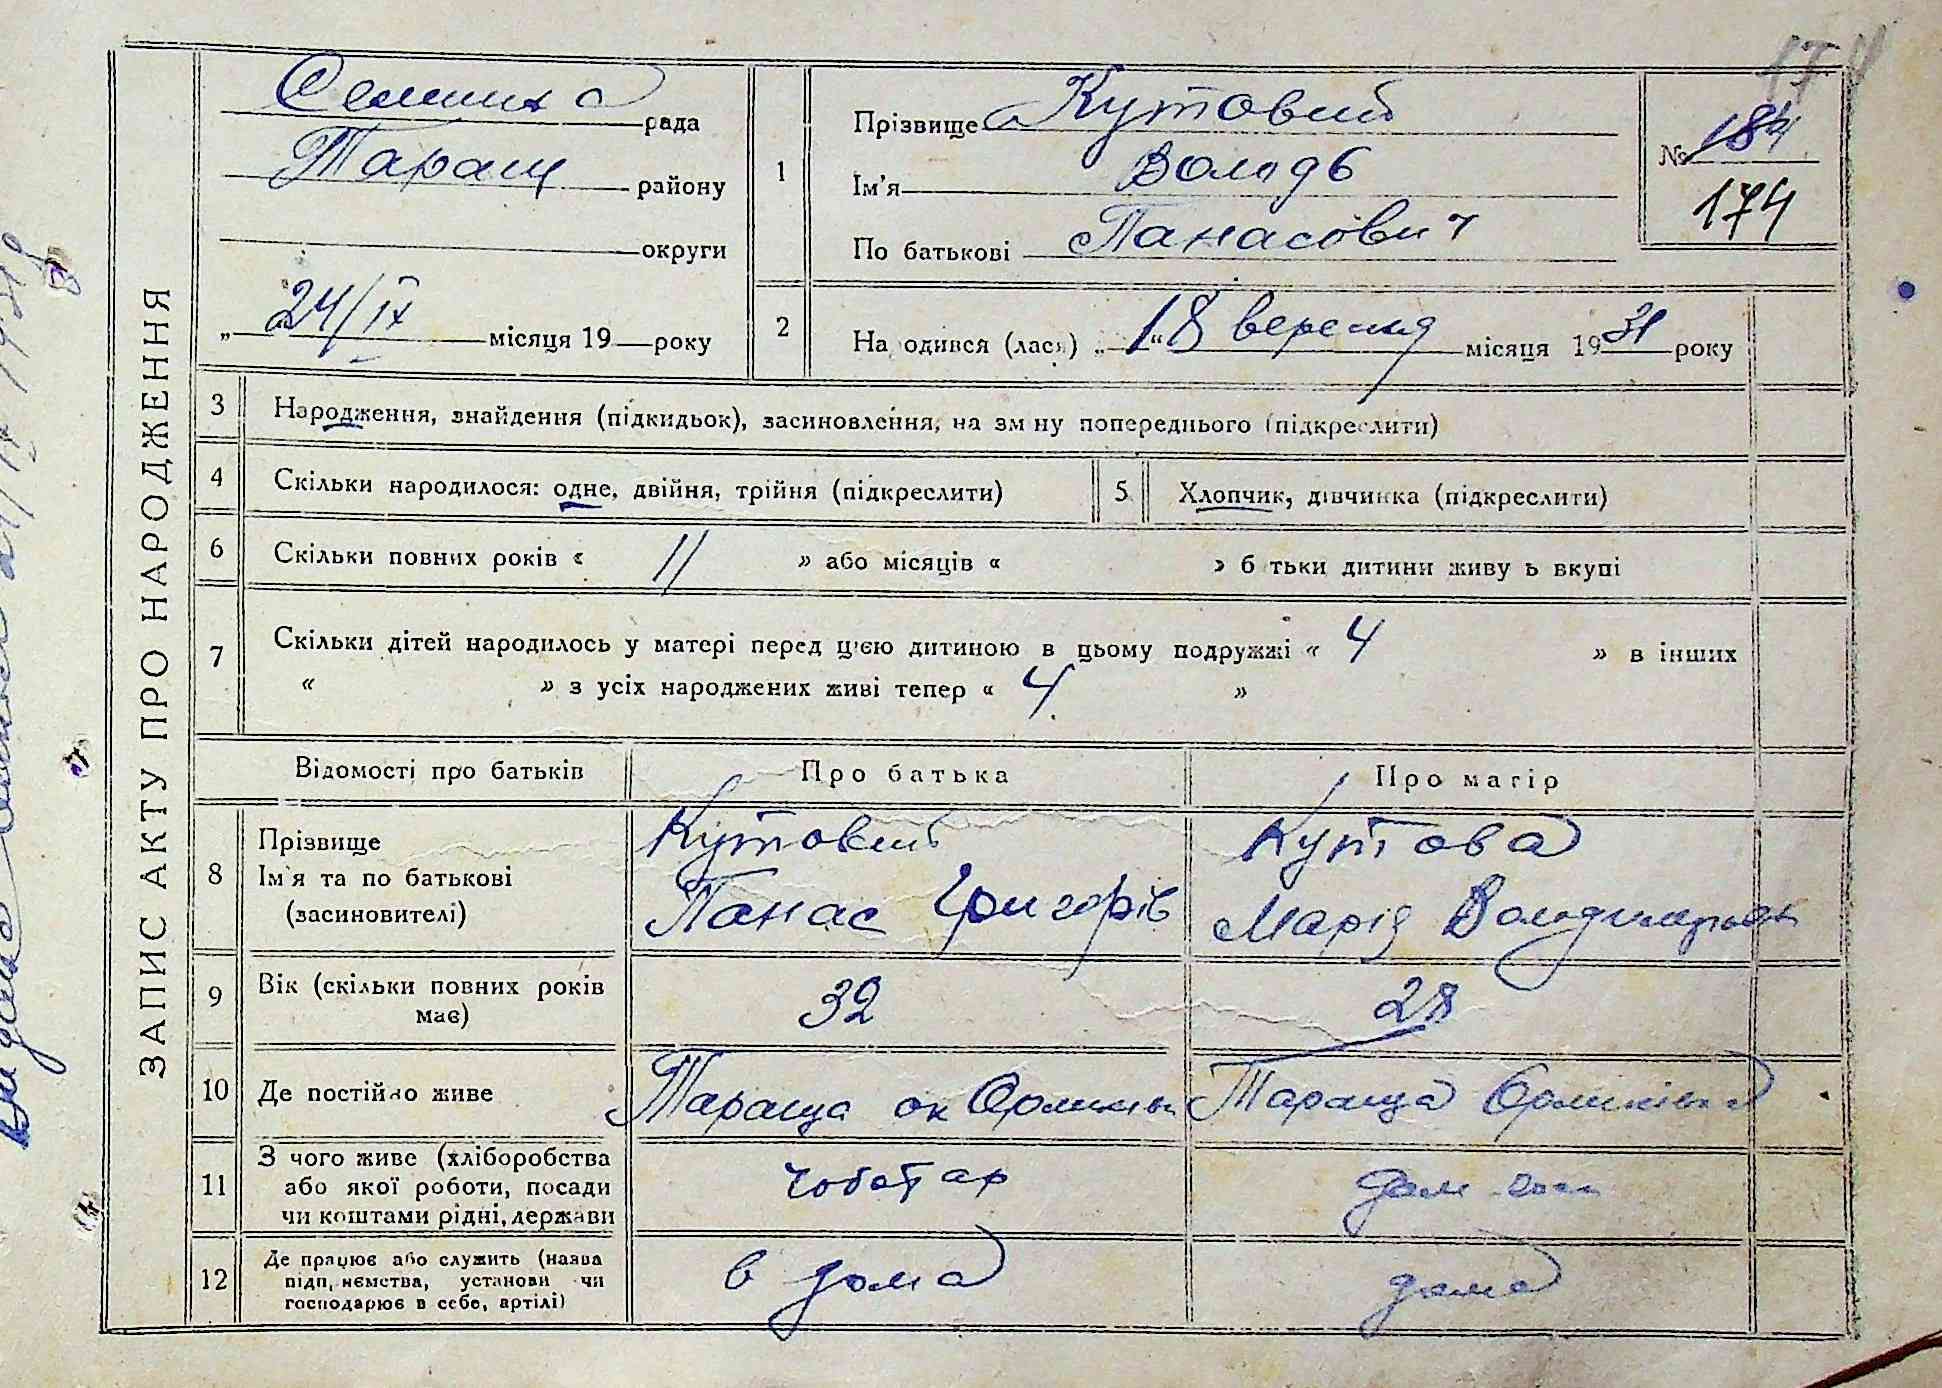 ЗАПИС АКТУ ПРО НАРОДЖЕННЯ
Селищна рада
Таращ району
округи
„ 24/IX місяця 19 року
1
Прізвище Кутовий
Ім'я Володь
По батькові Панасович
№ 184
174
174
2
На одився (лася) „18“ вересня місяця 1931 року
3 Народження, знайдення (підкидьок), засиновлення, на зм ну попереднього (підкреслити)
4 Скільки народилося: одне, двійня, трійня (підкреслити)
5 Хлопчик, дівчинка (підкреслити)
6 Скільки повних років « 11 » або місяців « » б тьки дитини живу ь вкупі
7 Скільки дітей народилось у матері перед цією дитиною в цьому подружжі « 4 » в інших
« » з усіх народжених живі тепер « 4 »
Відомості про батьків Про батька Про матір
8 Прізвище Ім'я та по батькові (засиновителі)
Кутовий
Панас Григорів
Кутова
Марія
9 Вік (скільки повних років має) 32 28
10 Де постійно живе Тараща ок Тараща
11 З чого живе (хліборобства
або якої роботи, посади
чи коштами рідні, держави
чоботар
дом
12 Де працює або служить (назва
підп, нємства, установи чи
господарює в себе, артілі)
в дома
дома